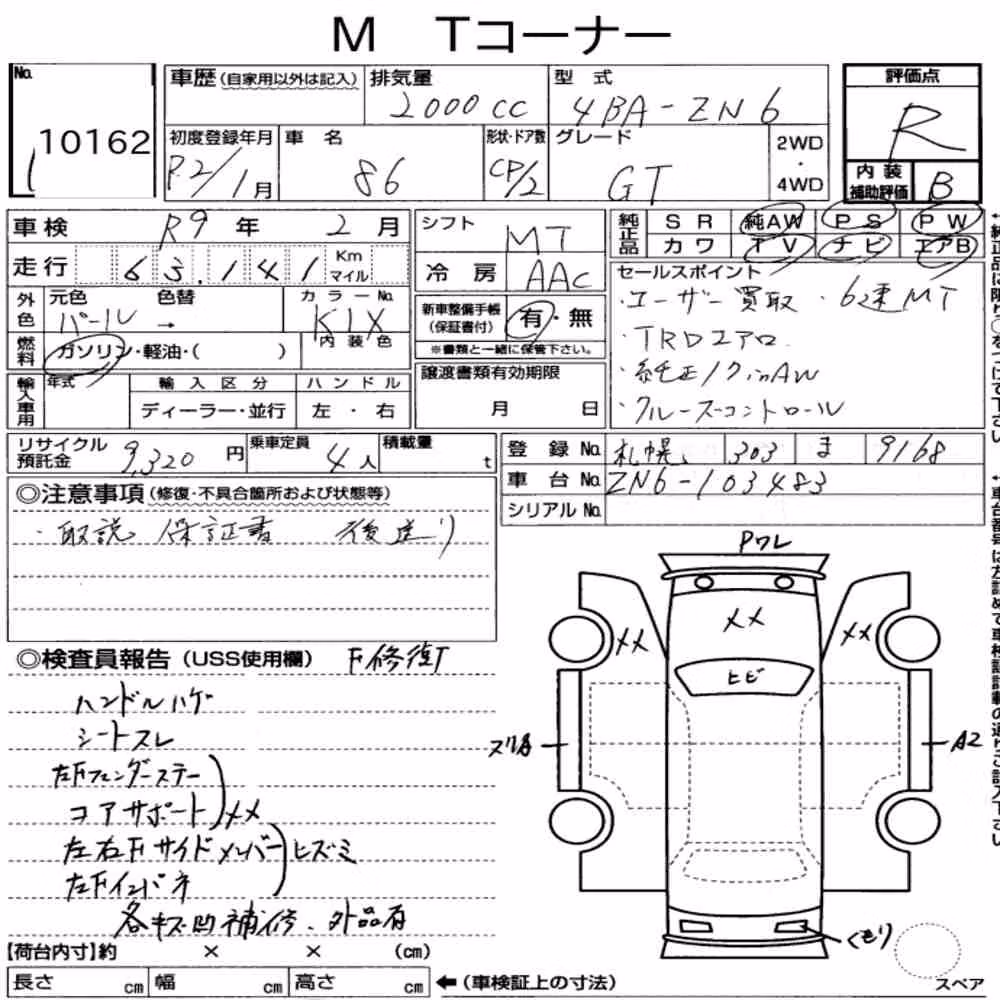 M Tコーナー
No.
10162
車歴(自家用以外は記入)
排気量
2000cc
型式
4BA-ZN6
評価点
R
初度登録年月
R2/1月
車名
86
形状・ドア数
CP/2
グレード
GT
2WD
・
4WD
内装
補助評価
B
車検 R9年 2月
走行 63,141 Km
マイル
外色
元色
パール
色替
→
カラーNo.
K1X
内装色
燃料
ガソリン・軽油・( )
輸入車用
年式
輸入区分
ディーラー・並行
ハンドル
左・右
シフト
MT
冷房
AAC
新車整備手帳
(保証書付)
有・無
※書類と一緒に保管下さい。
譲渡書類有効期限
月 日
純正品
SR 純AW PS PW
カワ TV ナビ エアB
セールスポイント
・ユーザー買取 ・6速MT
・TRDエアロ
・純正17inAW
・クルーズコントロール
リサイクル
預託金
9,320円
乗車定員
4人
積載量
t
登録No. 札幌 303 ま 9168
車台No. ZN6-103483
シリアルNo.
◎注意事項(修復・不具合箇所および状態等)
・取説、保証書 後送り
◎検査員報告(USS使用欄) F修復
ハンドルハゲ
シートスレ
左Fフェンダーステー
コアサポート メメ
左右Fサイドメンバー ヒズミ
左Fインパネ
各キズ凹補修、外品有
Pワレ
メメ
メメ
メメ
ヒビ
A2
くもり
スペア
【荷台内寸】約 × × (cm)
長さ cm 幅 cm 高さ cm ←(車検証上の寸法)